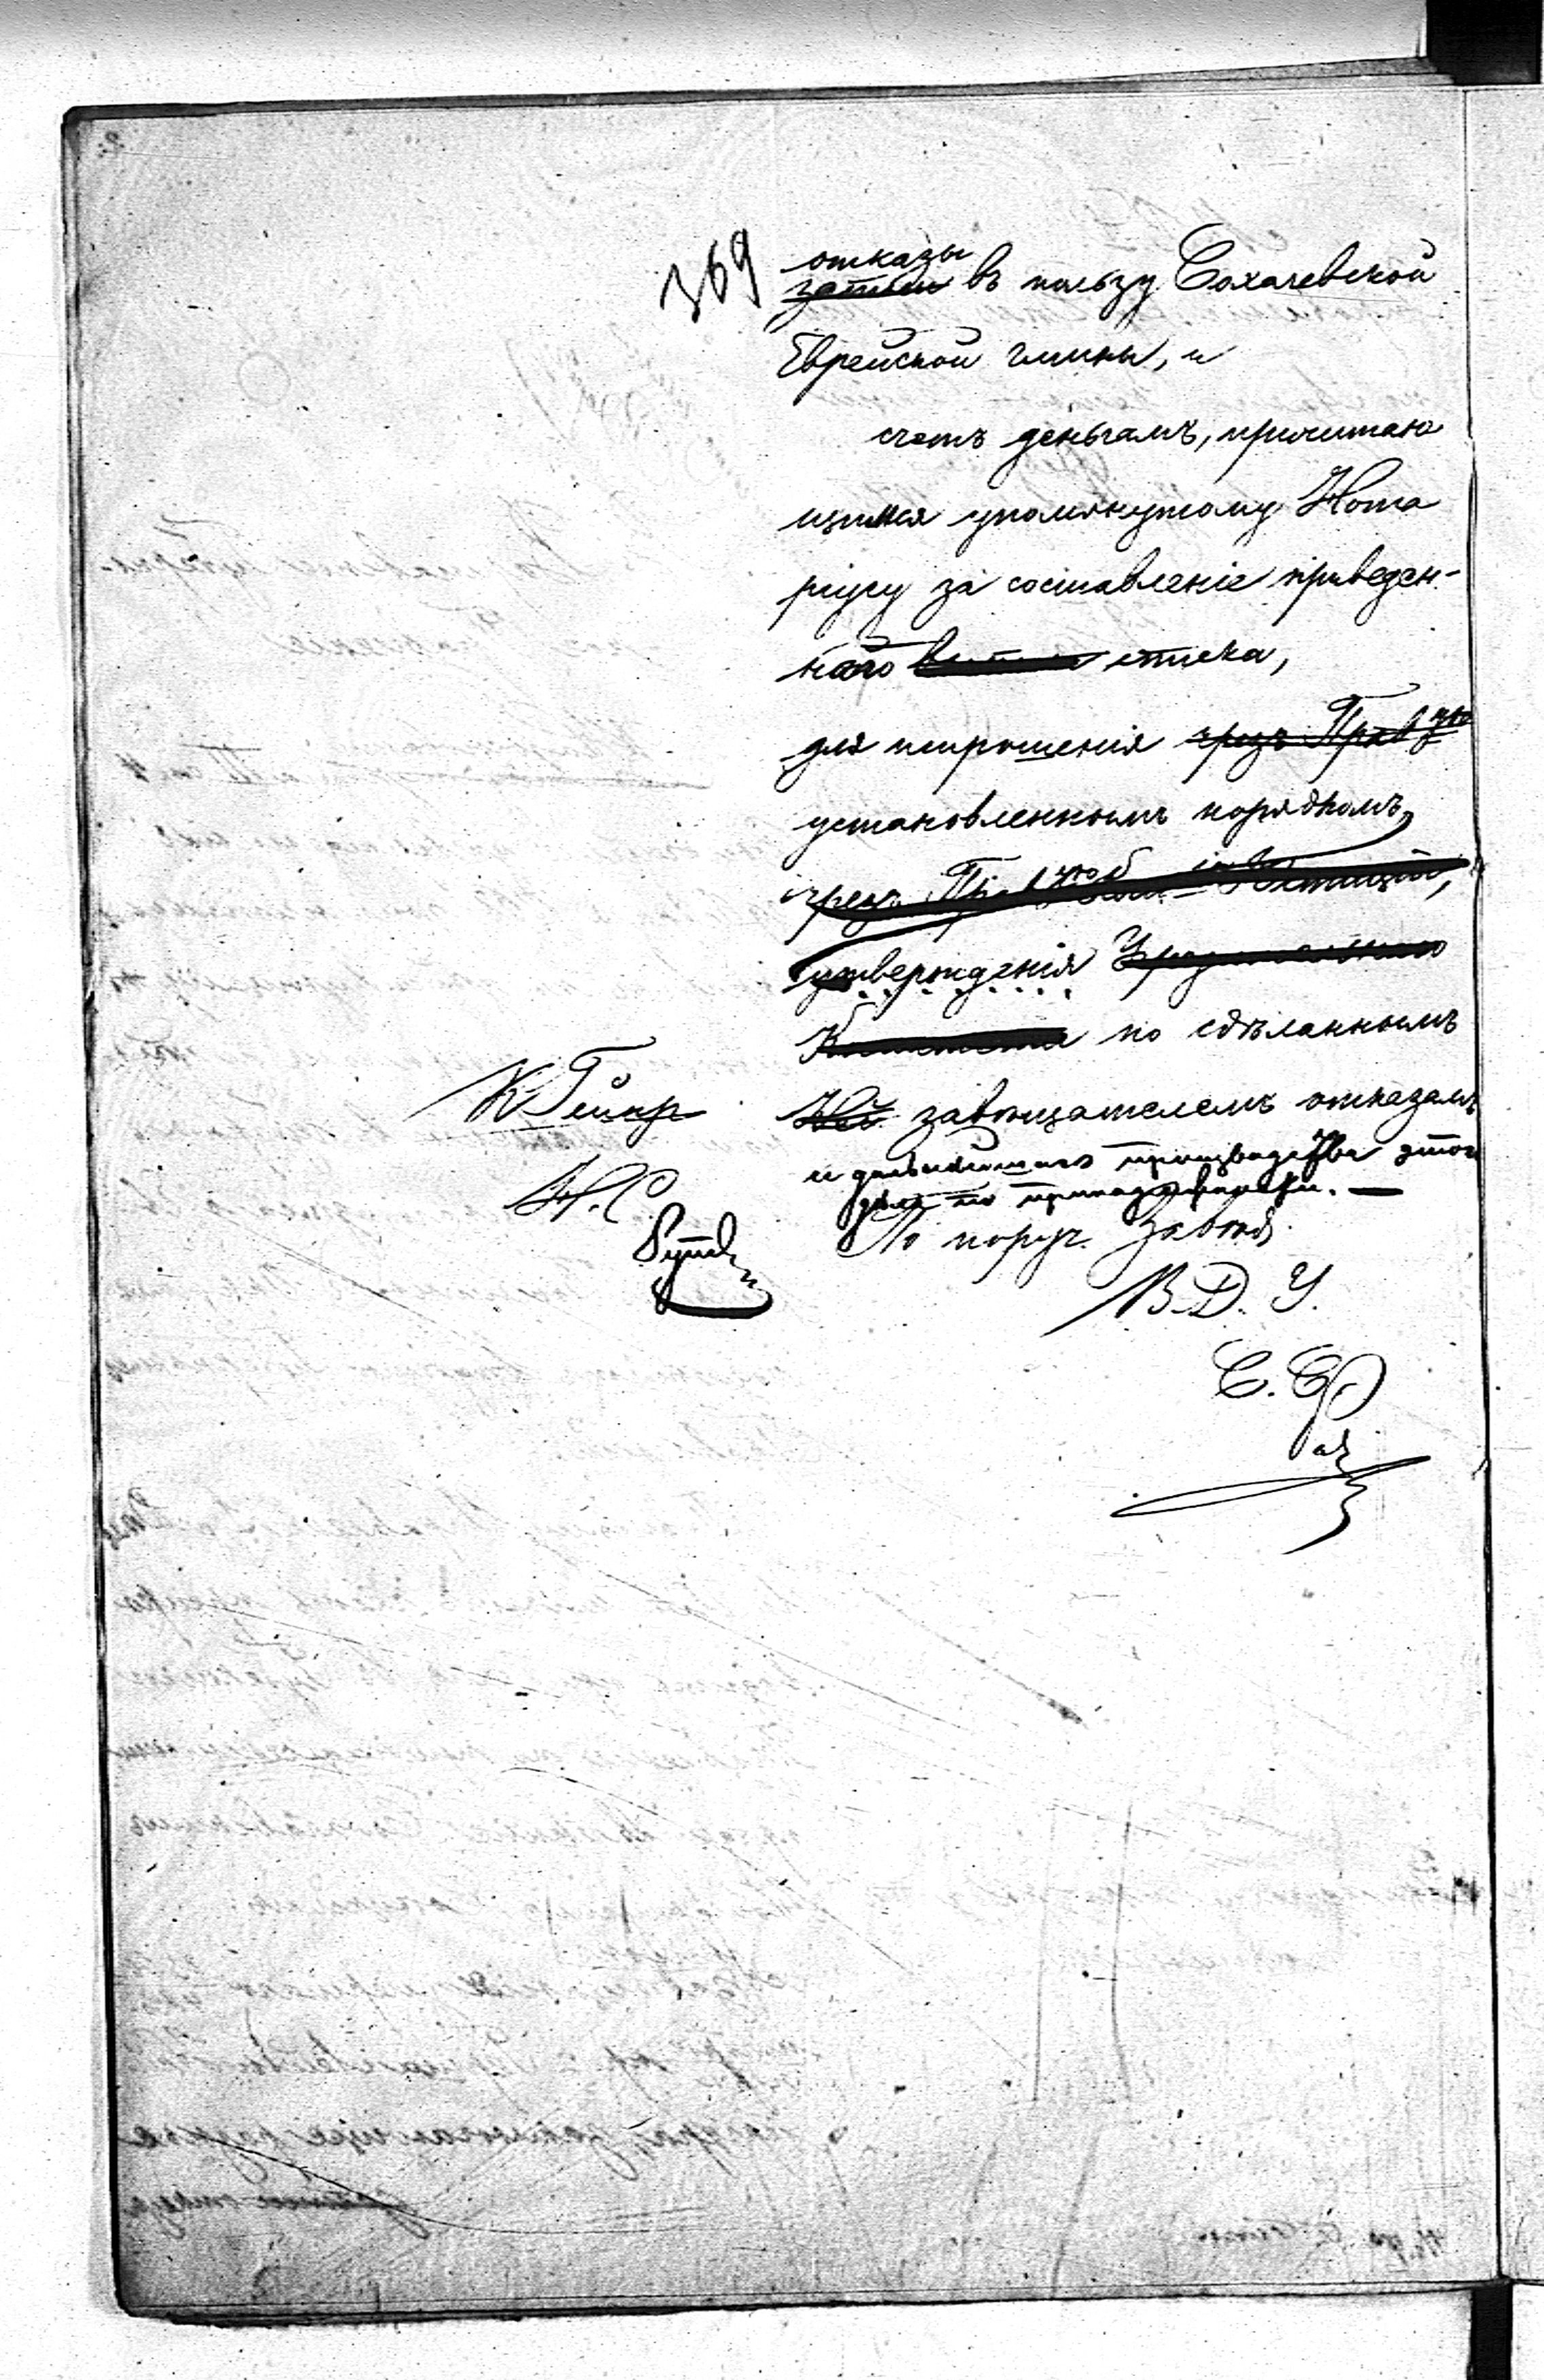 369
отказы
въ пользу Сохачевской
Еврейской гмины, и
счетъ деньгамъ, причитаю
щимся упомянутому Нота
ріусу за составленіе приведен-
наго списка,
для испрошенія чрезъ
установленнымъ порядкомъ,
чрезъ
утвержденія
по сдѣланнымъ
завѣщателемъ отказамъ
и дальнѣйшаго производства этого
дѣла по принадлежности. —
По поруч. Завѣд.
В. Д. У.
С.